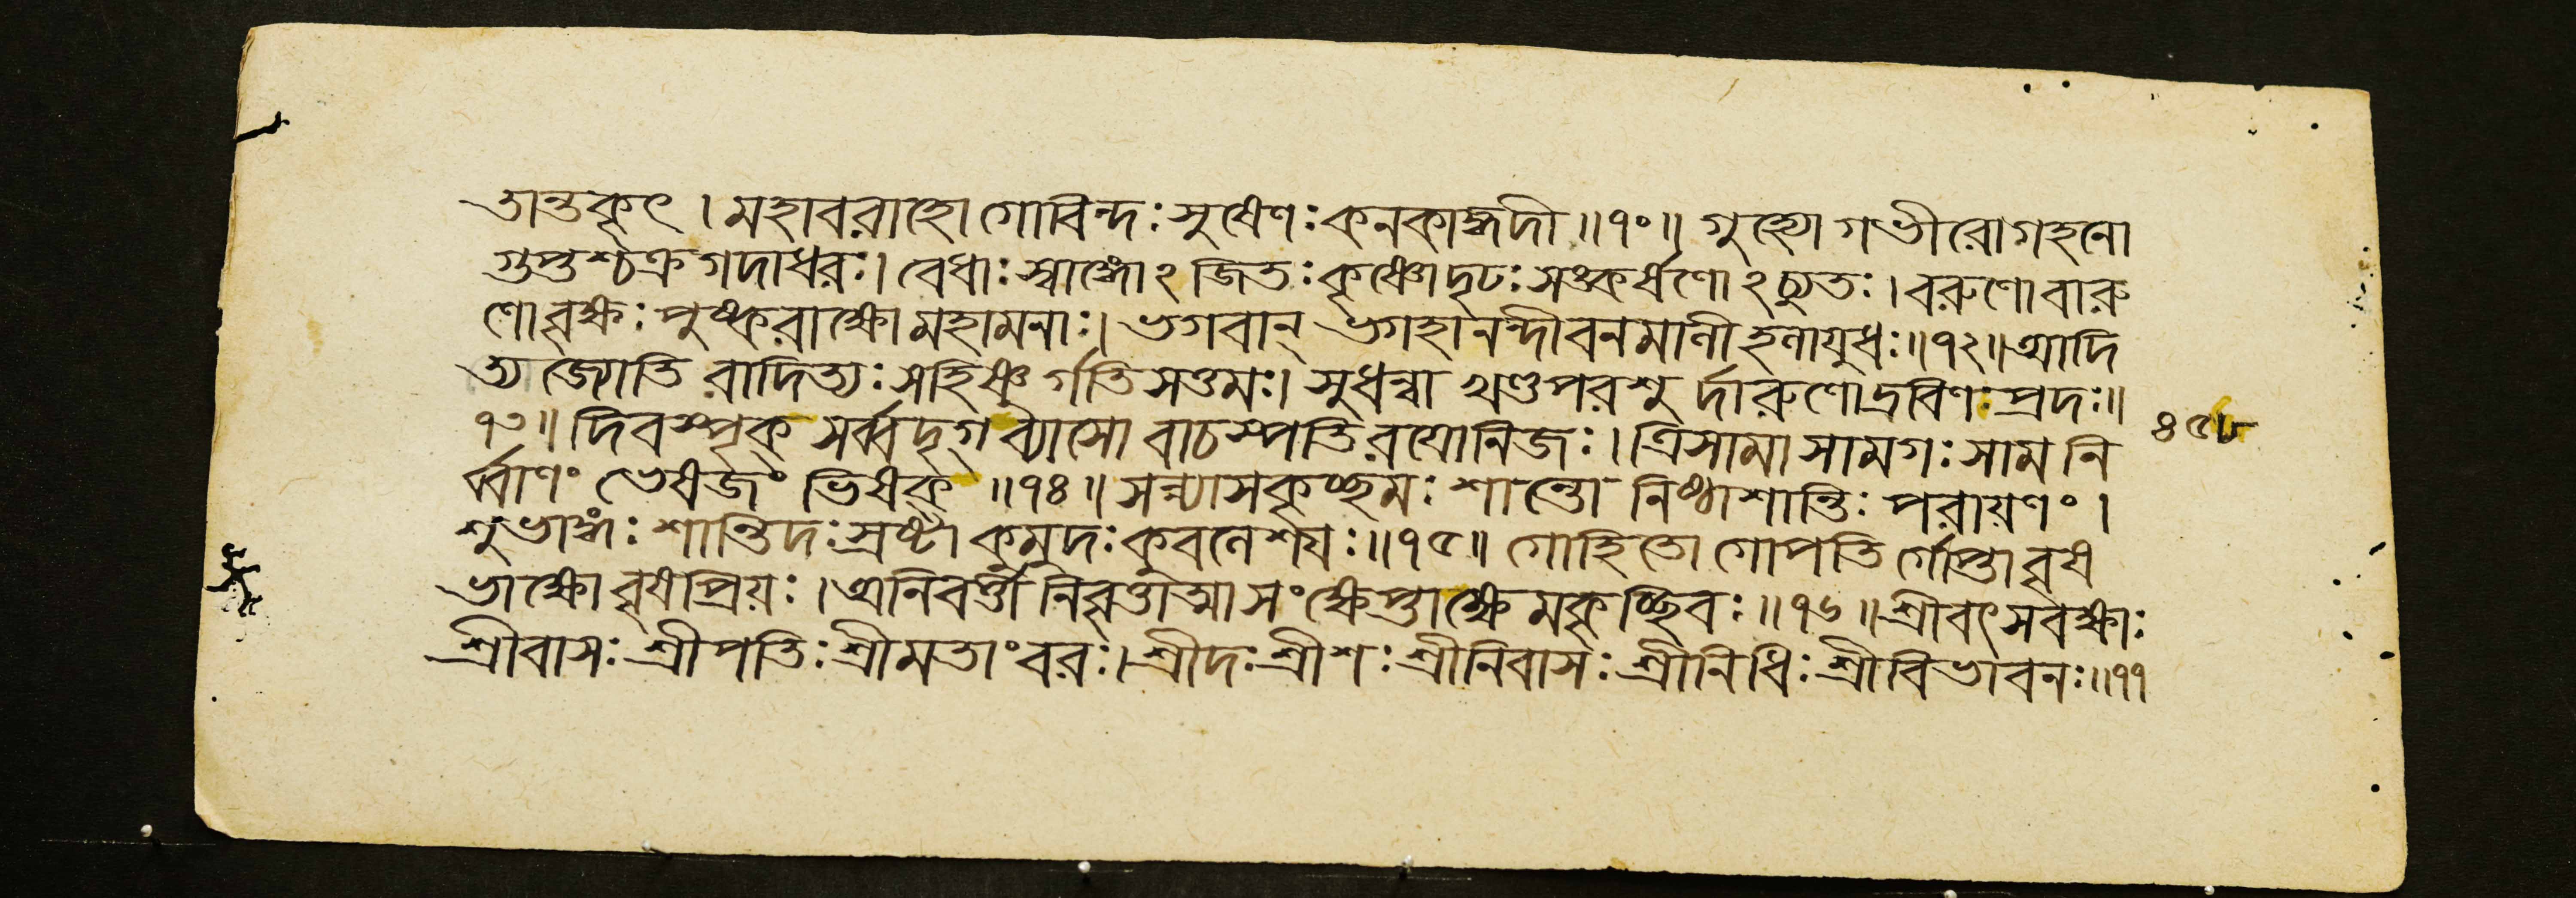 তান্তকৃৎ । মহাবরাহো গোবিন্দঃ সুষেণঃ কনকাঙ্গদী ॥৭০॥ গুহ্যো গভীরো গহনো
গুপ্তশ্চক্র গদাধরঃ। বেধাঃ স্বাঙ্গোঽ জিতঃ কৃষ্ণোদৃঢঃ সঙ্কর্ষণোঽচ্যুতঃ । বরুণো বারু
ণো বৃক্ষঃ পুষ্করাক্ষো মহামনাঃ। ভগবান্ ভগহানন্দীবনমালী হলায়ুধঃ ॥৭২॥ আদি
ত্য জ্যোতি রাদিত্যঃ সহিষ্ণু র্গতি সত্তমঃ। সুধন্বা খণ্ডপরশু র্দারুণো দ্রবিণঃ প্রদঃ॥
৭৩॥ দিবস্পৃক্ সর্ব্বদৃগ্ ব্যাসো বাচস্পতি রযোনিজঃ । ত্রিসামা সামগঃ সাম নি
র্ব্বাণং ভেষজং ভিষক্ ॥৭৪॥ সন্ন্যাসকৃচ্ছমঃ শান্তো নিষ্ঠাশান্তিঃ পরায়ণং ।
শুভাঙ্গঃ শান্তিদঃ স্রষ্টা কুমুদঃ কুবলেশযঃ ॥৭৫॥ গোহিতো গোপতি র্গোপ্তা বৃষ
ভাক্ষো বৃষপ্রিয়ঃ । অনিবর্ত্তী নিবৃত্তাত্মা সংক্ষেপ্তা ক্ষেমকৃচ্ছিবঃ ॥৭৬॥ শ্রীবৎসবক্ষাঃ
শ্রীবাসঃ শ্রীপতিঃ শ্রীমতাং বরঃ। শ্রীদঃ শ্রীশঃ শ্রীনিবাসঃ শ্রীনিধিঃ শ্রীবিভাবনঃ ॥৭৭
৪৫৮